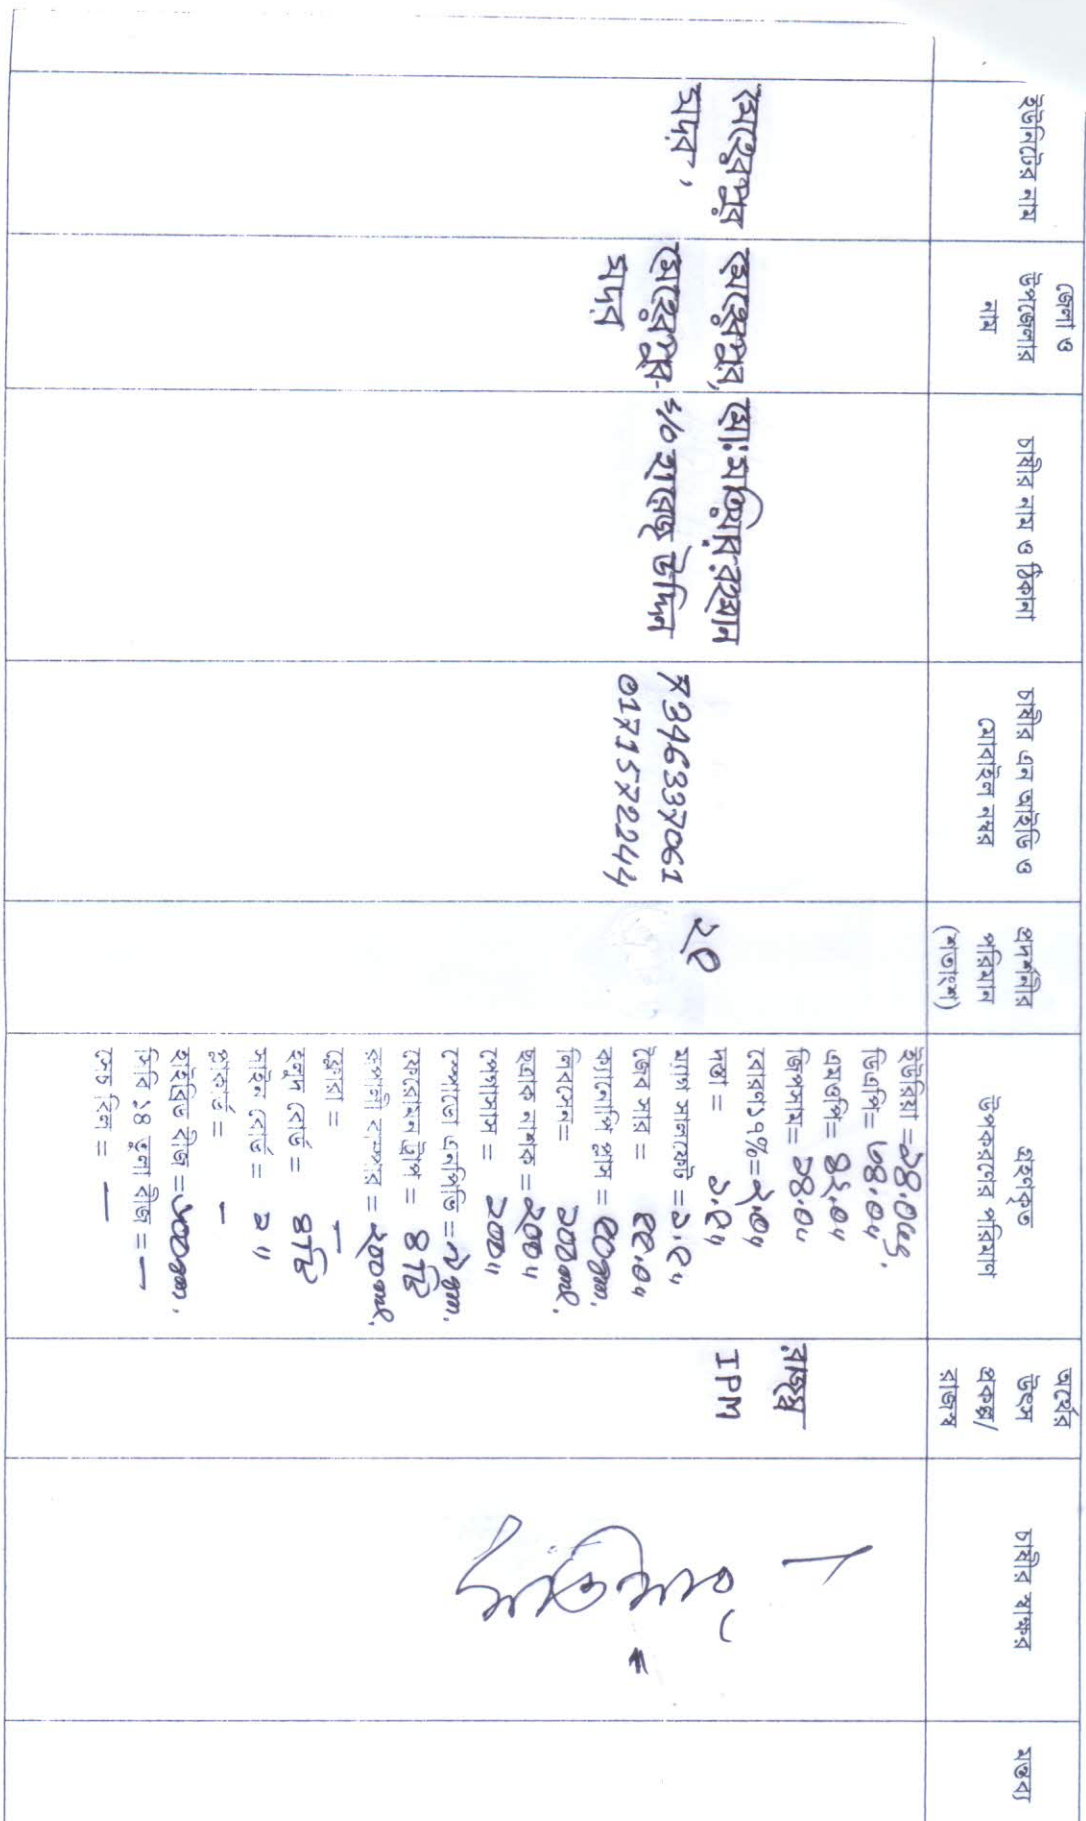 ইউনিটের নাম
জেলা ও
উপজেলার
নাম
চাষীর নাম ও ঠিকানা
চাষীর এন আইডি ও
মোবাইল নম্বর
প্রদর্শনীর
পরিমান
(শতাংশ)
গ্রহণকৃত
উপকরণের পরিমাণ
অর্থের
উৎস
প্রকল্প/
রাজস্ব
চাষীর স্বাক্ষর
মন্তব্য
মেহেরপুর
সদর,
মেহেরপুর,
মেহেরপুর-
সদর
মো: মতিয়ুর রহমান
s/o হারেজ উদ্দিন
7346337061
01715722244
২৫
ইউরিয়া = ১৪.০kg
ডিএপি= ৩৪.০"
এমওপি= ৪২.০"
জিপসাম= ১৪.০"
বোরণ১৭%= ২.০"
দস্তা = ১.৫"
ম্যাগ সালফেট = ১.৫"
জৈব সার = ৫৫.০"
ক্যানোপি প্লাস = ৫০gm.
লিবসেন= ১০০ml.
ছত্রাক নাশক = ২০০"
পেগাসাস = ১০০"
স্পোডো এনপিভি = ৯gm.
ফেরোমন ট্রাপ = ৪টি
রূপালী বাম্পার = ২০০ml.
ফ্লোরা = —
হলুদ বোর্ড = ৪টি
সাইন বোর্ড = ১"
প্লাকার্ড = —
হাইব্রিড বীজ = ৬০০gm.
সিবি ১৪ তুলা বীজ = —
সেচ বিল = —
রাজস্ব
IPM